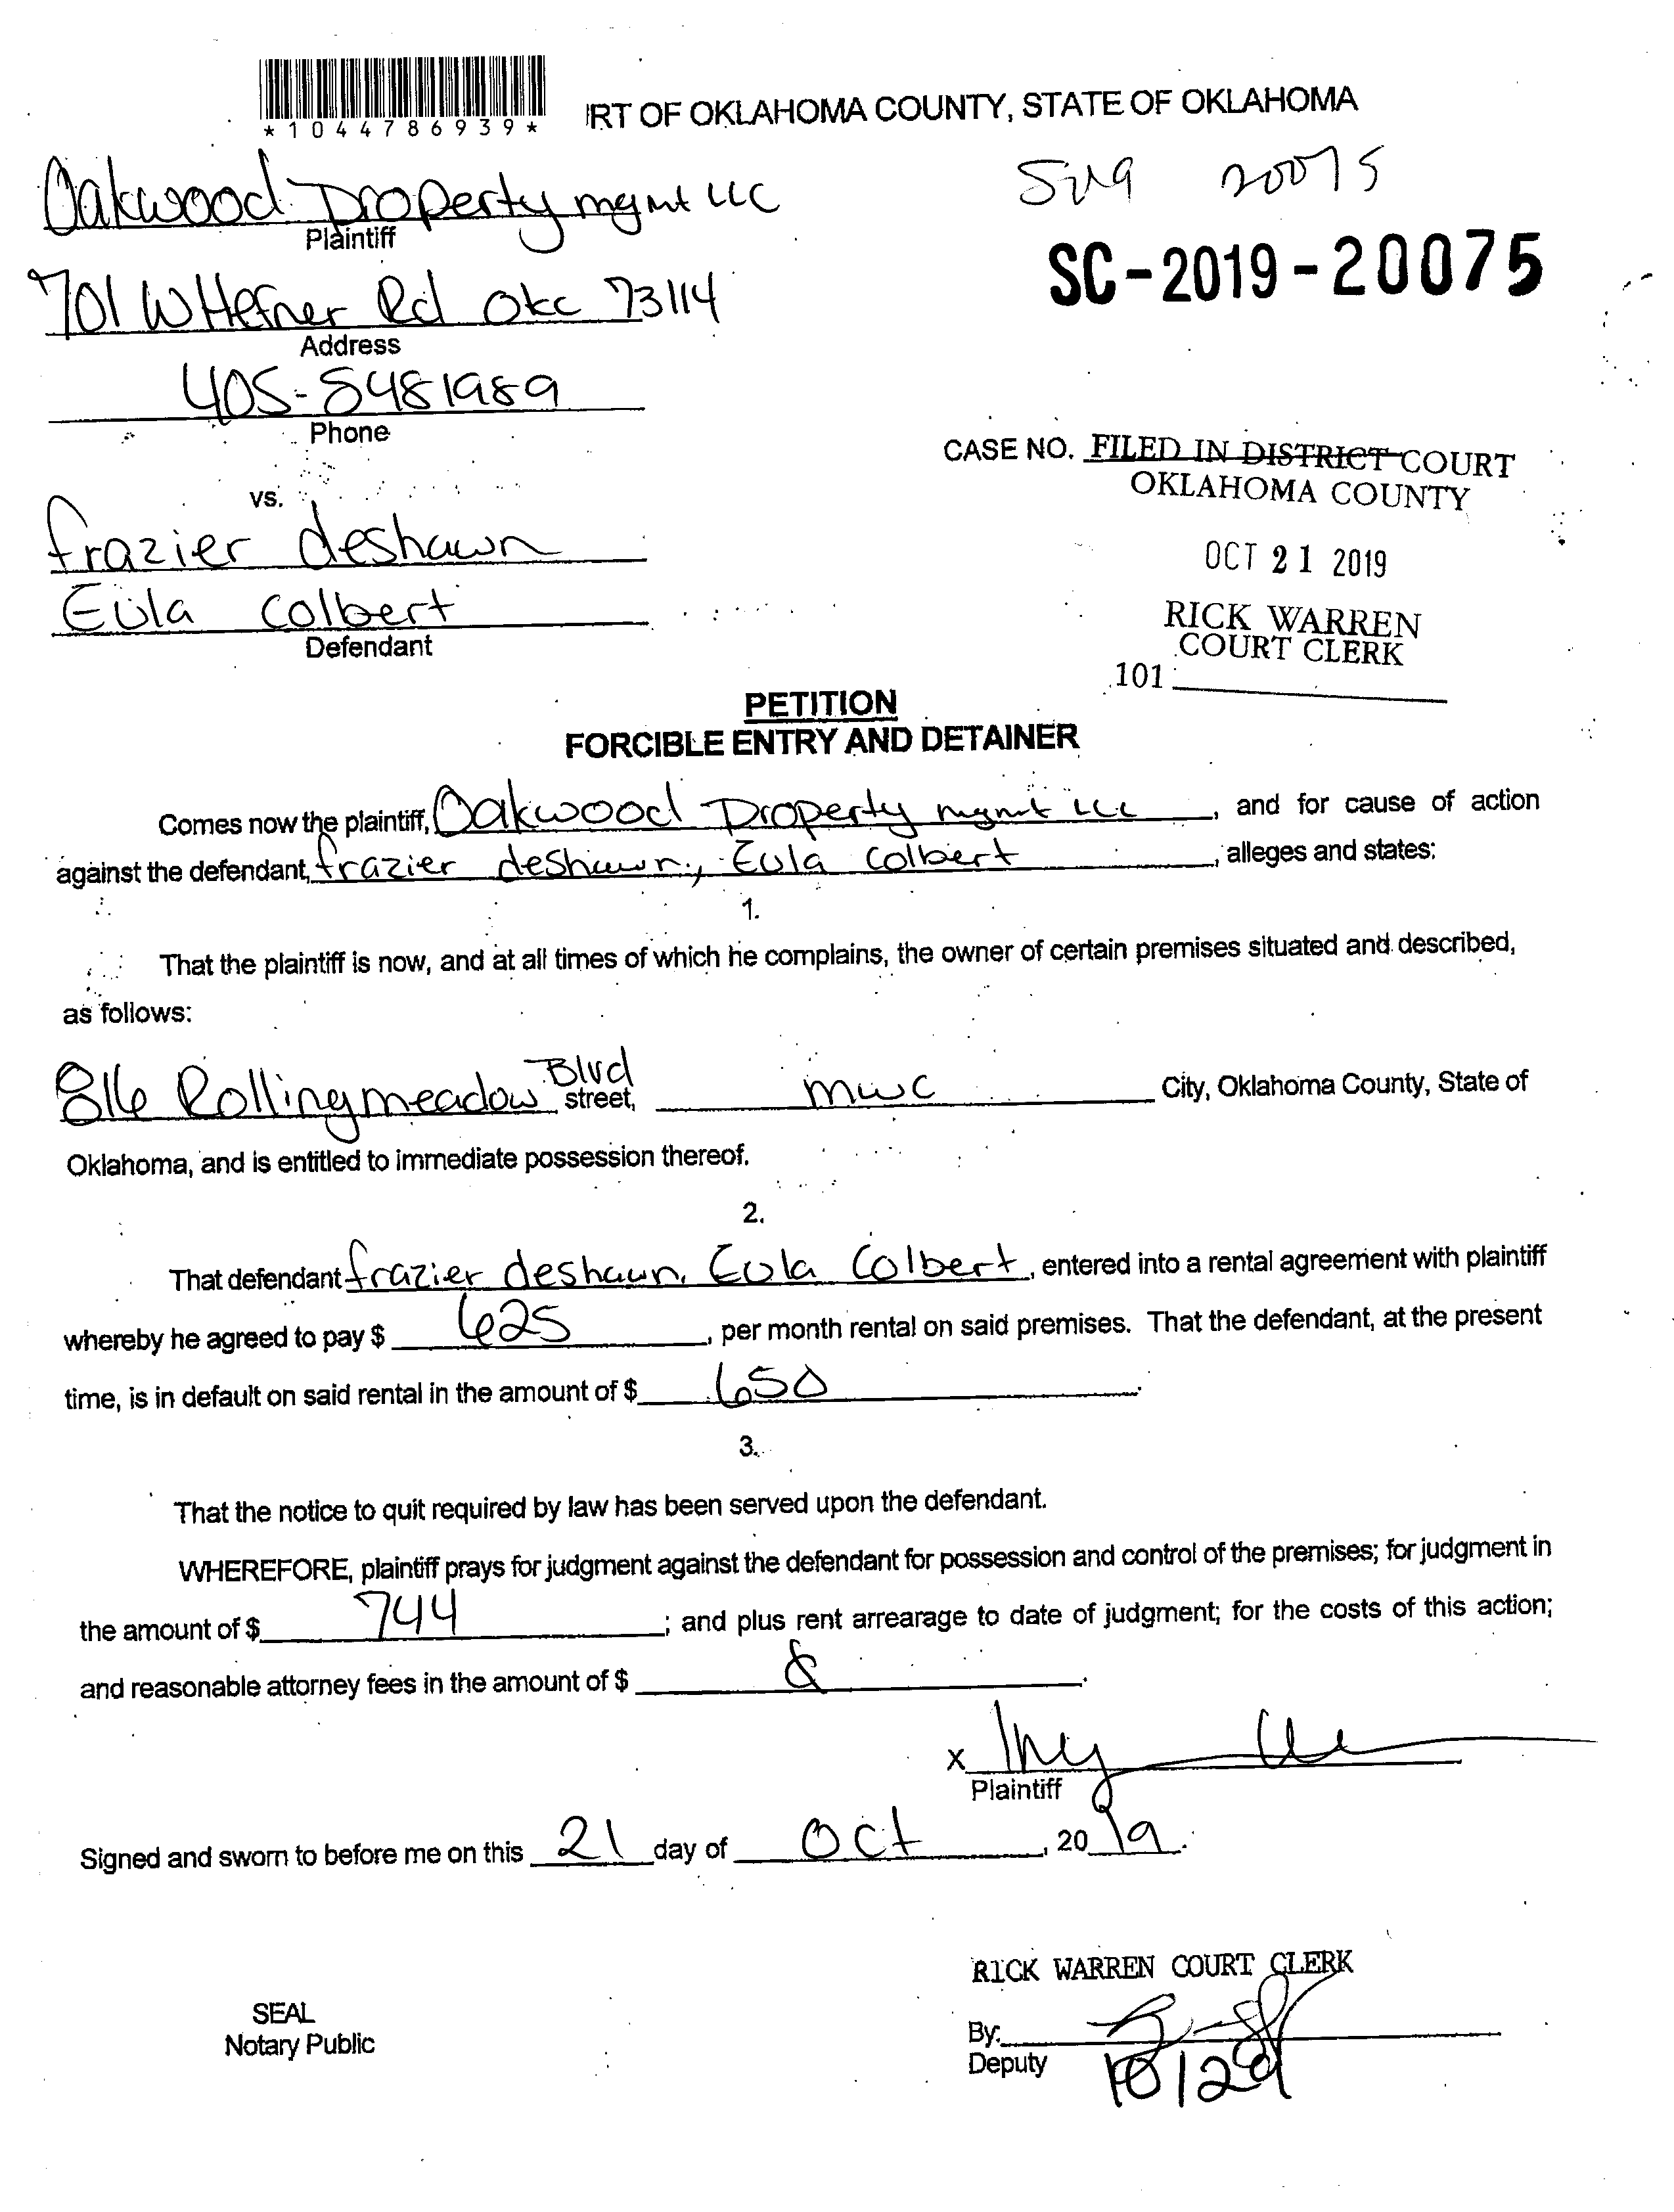 *1044786939*
IRT OF OKLAHOMA COUNTY, STATE OF OKLAHOMA
Oakwood Property mgmt LLC
Plaintiff
20075
SC-2019-20075
701 W Hefner Rd Okc 73114
Address
405-5481989
Phone
CASE NO. FILED IN DISTRICT COURT
OKLAHOMA COUNTY
vs.
OCT 21 2019
frazier deshawn
RICK WARREN
COURT CLERK
Eula Colbert
Defendant
101
PETITION
FORCIBLE ENTRY AND DETAINER
Comes now the plaintiff, Oakwood Property mgmt LLC, and for cause of action
against the defendant, frazier deshawn, Eula Colbert, alleges and states:
1.
That the plaintiff is now, and at all times of which he complains, the owner of certain premises situated and described,
as follows:
816 Rollingmeadow Blvd street, mwc City, Oklahoma County, State of
Oklahoma, and is entitled to immediate possession thereof.
2.
That defendant frazier deshawn, Eula Colbert, entered into a rental agreement with plaintiff
whereby he agreed to pay $ 625, per month rental on said premises. That the defendant, at the present
time, is in default on said rental in the amount of $ 650.
3.
That the notice to quit required by law has been served upon the defendant.
WHEREFORE, plaintiff prays for judgment against the defendant for possession and control of the premises; for judgment in
the amount of $ 744; and plus rent arrearage to date of judgment; for the costs of this action;
and reasonable attorney fees in the amount of $
X
Plaintiff
Signed and sworn to before me on this 21 day of Oct, 2019.
RICK WARREN COURT CLERK
SEAL
Notary Public
By:
Deputy